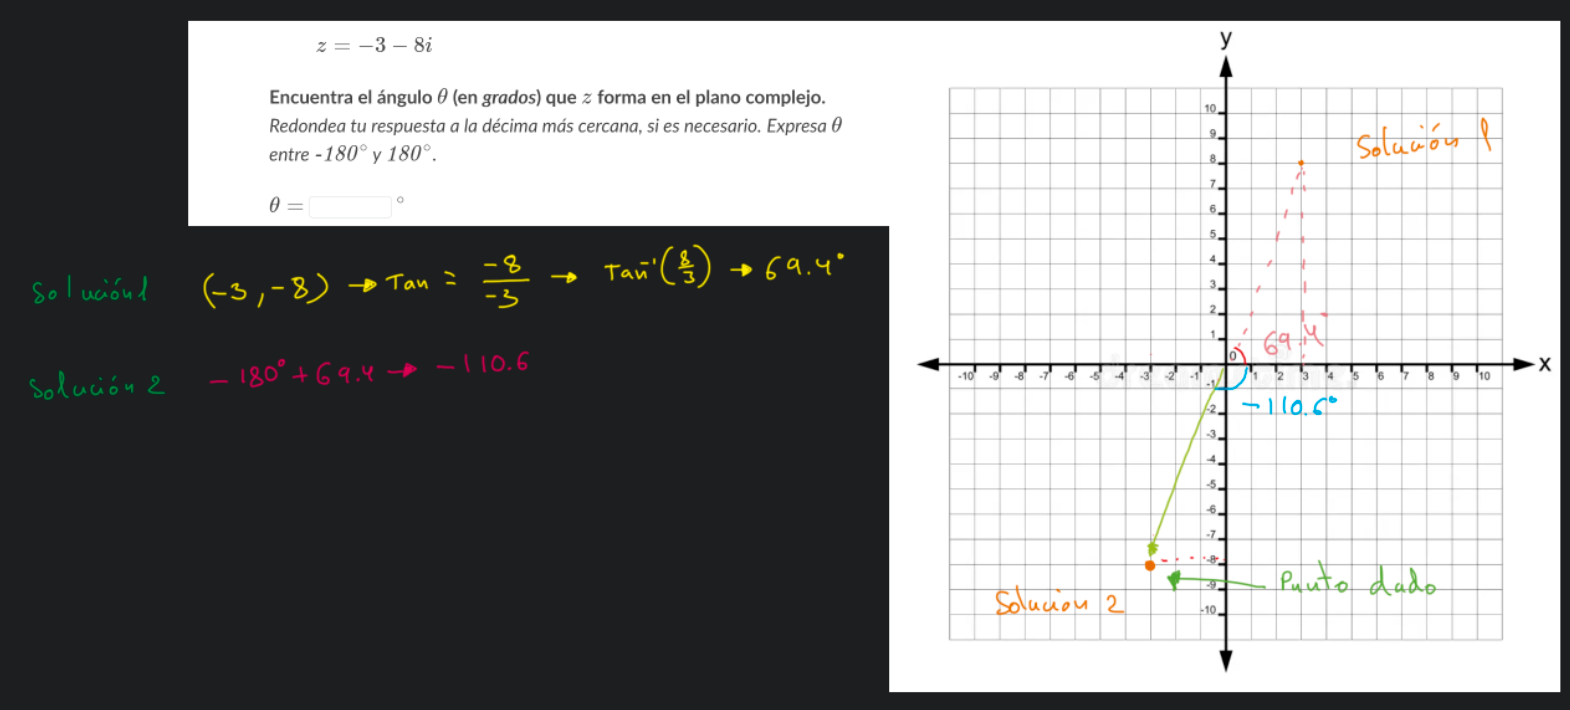 z = −3 − 8i
Encuentra el ángulo θ (en grados) que z forma en el plano complejo.
Redondea tu respuesta a la décima más cercana, si es necesario. Expresa θ
entre -180° y 180°.
θ = °
Solución1 (-3,-8) → Tan = -8/-3 → Tan⁻¹(8/3) → 69.4°
Solución 2 -180°+69.4 → -110.6
y
10
9
8
7
6
5
4
3
2
1
0
-10 -9 -8 -7 -6 -5 -4 -3 -2 -1 1 2 3 4 5 6 7 8 9 10
x
-1
-2
-3
-4
-5
-6
-7
-8
-9
-10
Solución 1
69.4°
-110.6°
Punto dado
Solucion 2